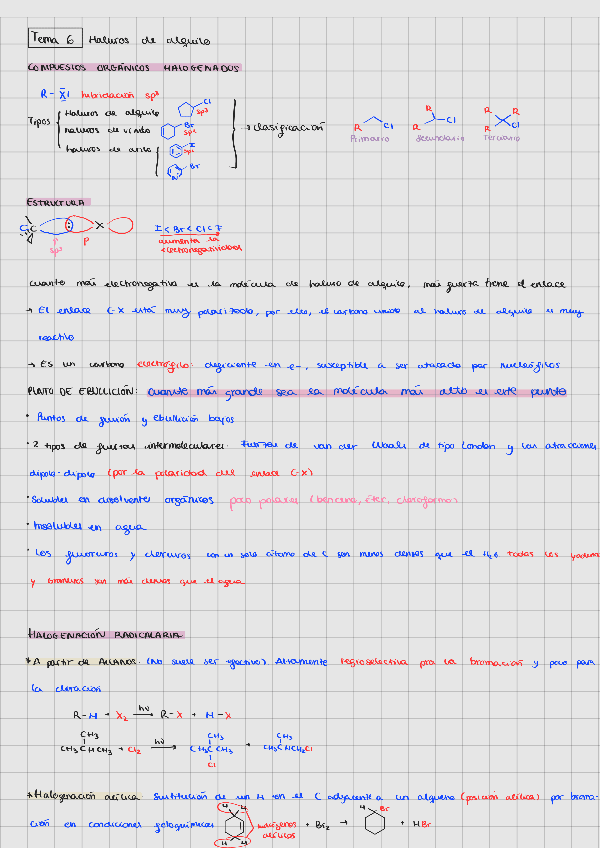 Tema 6 Haluros de alquilo
COMPUESTOS ORGÁNICOS HALOGENADOS
R - X| hibridación sp³
Tipos
Haluros de alquilo
Cl
sp³
haluros de vinilo
Br
sp²
haluros de arilo
I
sp²
Br
→ clasificación
R Cl
Primario
R
R Cl
Secundario
R R
R Cl
Terciario
ESTRUCTURA
C X
p p
sp³
I < Br < Cl < F
aumenta la
electronegatividad
cuanto más electronegativa es la molécula de haluro de alquilo, más fuerza tiene el enlace
→ El enlace C-X está muy polarizado, por ello, el carbono unido al haluro de alquilo es muy
reactivo
→ Es un carbono electrófilo: deficiente en e-, susceptible a ser atacado por nucleófilos
PUNTO DE EBULLICIÓN: cuanto más grande sea la molécula más alto es este punto
· Puntos de fusión y ebullición bajos
· 2 tipos de fuerzas intermoleculares. Fuerzas de van der Waals de tipo London y las atracciones
dipolo-dipolo (por la polaridad del enlace C-X)
· Solubles en disolventes orgánicos poco polares (benceno, éter, cloroformo)
· Insolubles en agua
· Los fluoruros y cloruros con un solo átomo de C son menos densos que el H₂O todos los yoduros
y bromuros son más densos que el agua
HALOGENACIÓN RADICALARIA
* A partir de ALCANOS: (No suele ser efectivo) Altamente regioselectiva para la bromación y poco para
la cloración
R-H + X₂ hν → R-X + H-X
CH₃ CH₃ CH₃
CH₃CHCH₃ + Cl₂ hν → CH₃CCH₃ + CH₃CHCH₂Cl
Cl
* Halogenación alílica: Sustitución de un H en el C adyacente a un alqueno (posición alílica) por broma-
ción en condiciones fotoquímicas
H H
H H
hidrógenos
alílicos
+ Br₂ →
H Br
+ HBr